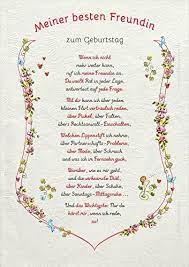 Meiner besten Freundin
zum Geburtstag
Wenn ich nicht
mehr weiter kann,
ruf ich meine Freundin an.
Du weißt Rat in jeder Lage,
antwortest auf jede Frage.
Mit dir kann ich über jeden
kleinen Furz vertraulich reden,
über Pickel, über Falten,
über's Rechtsanwalt-Einschalten,
Welchen Lippenstift ich nehme,
über Partnerschafts-Probleme,
über Mode, über Schmuck
und was ich im Fernsehn guck.
Worüber, wie es mir geht,
und die verteufelte Diät,
über Kinder, über Schuhe,
über Sonntags-Mittagsruhe...
Und das Wichtigste: Nur du
hörst mir, wenn ich rede,
zu!